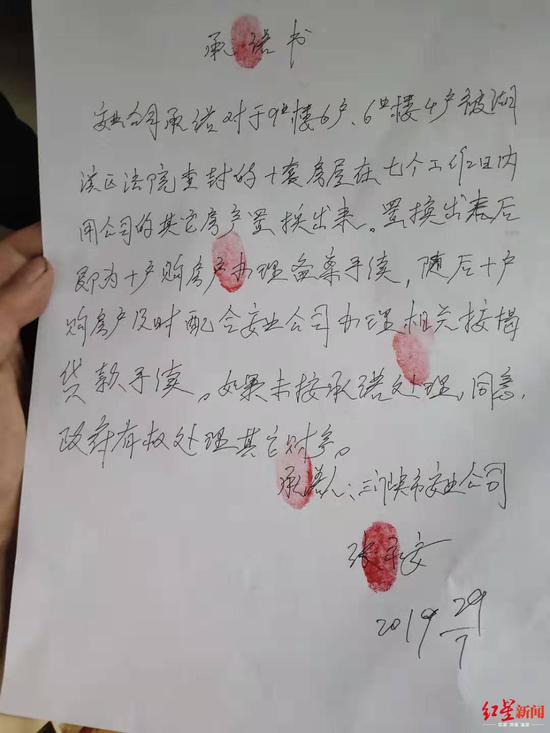 承诺书
安业公司承诺对于9#楼6户、6#楼4户被湖
滨区法院查封的十套房屋在七个工作日内
用公司的其它房产置换出来。置换出来后
即为十户购房户办理备案手续，随后十户
购房户及时配合安业公司办理相关按揭
贷款手续。如果未按承诺处理，同意
政府有权处理其它财产。
承诺人：三门峡市安业公司
张 安
2019 29/7
红星新闻